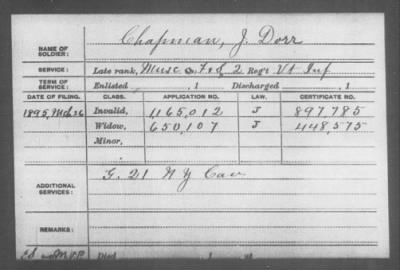 NAME OF SOLDIER: Chapman, J. Dorr
SERVICE: Late rank, Musc Co. F & S, 2 Reg't Vt Inf
TERM OF SERVICE: Enlisted , 1 Discharged , 1
DATE OF FILING. CLASS. APPLICATION NO. LAW. CERTIFICATE NO.
1895, Mch 26 Invalid, 1165,012 J 897,785
Widow, 650,107 J 448,575
Minor,
ADDITIONAL SERVICES: G. 21 N Y Cav
REMARKS:
Died , 1